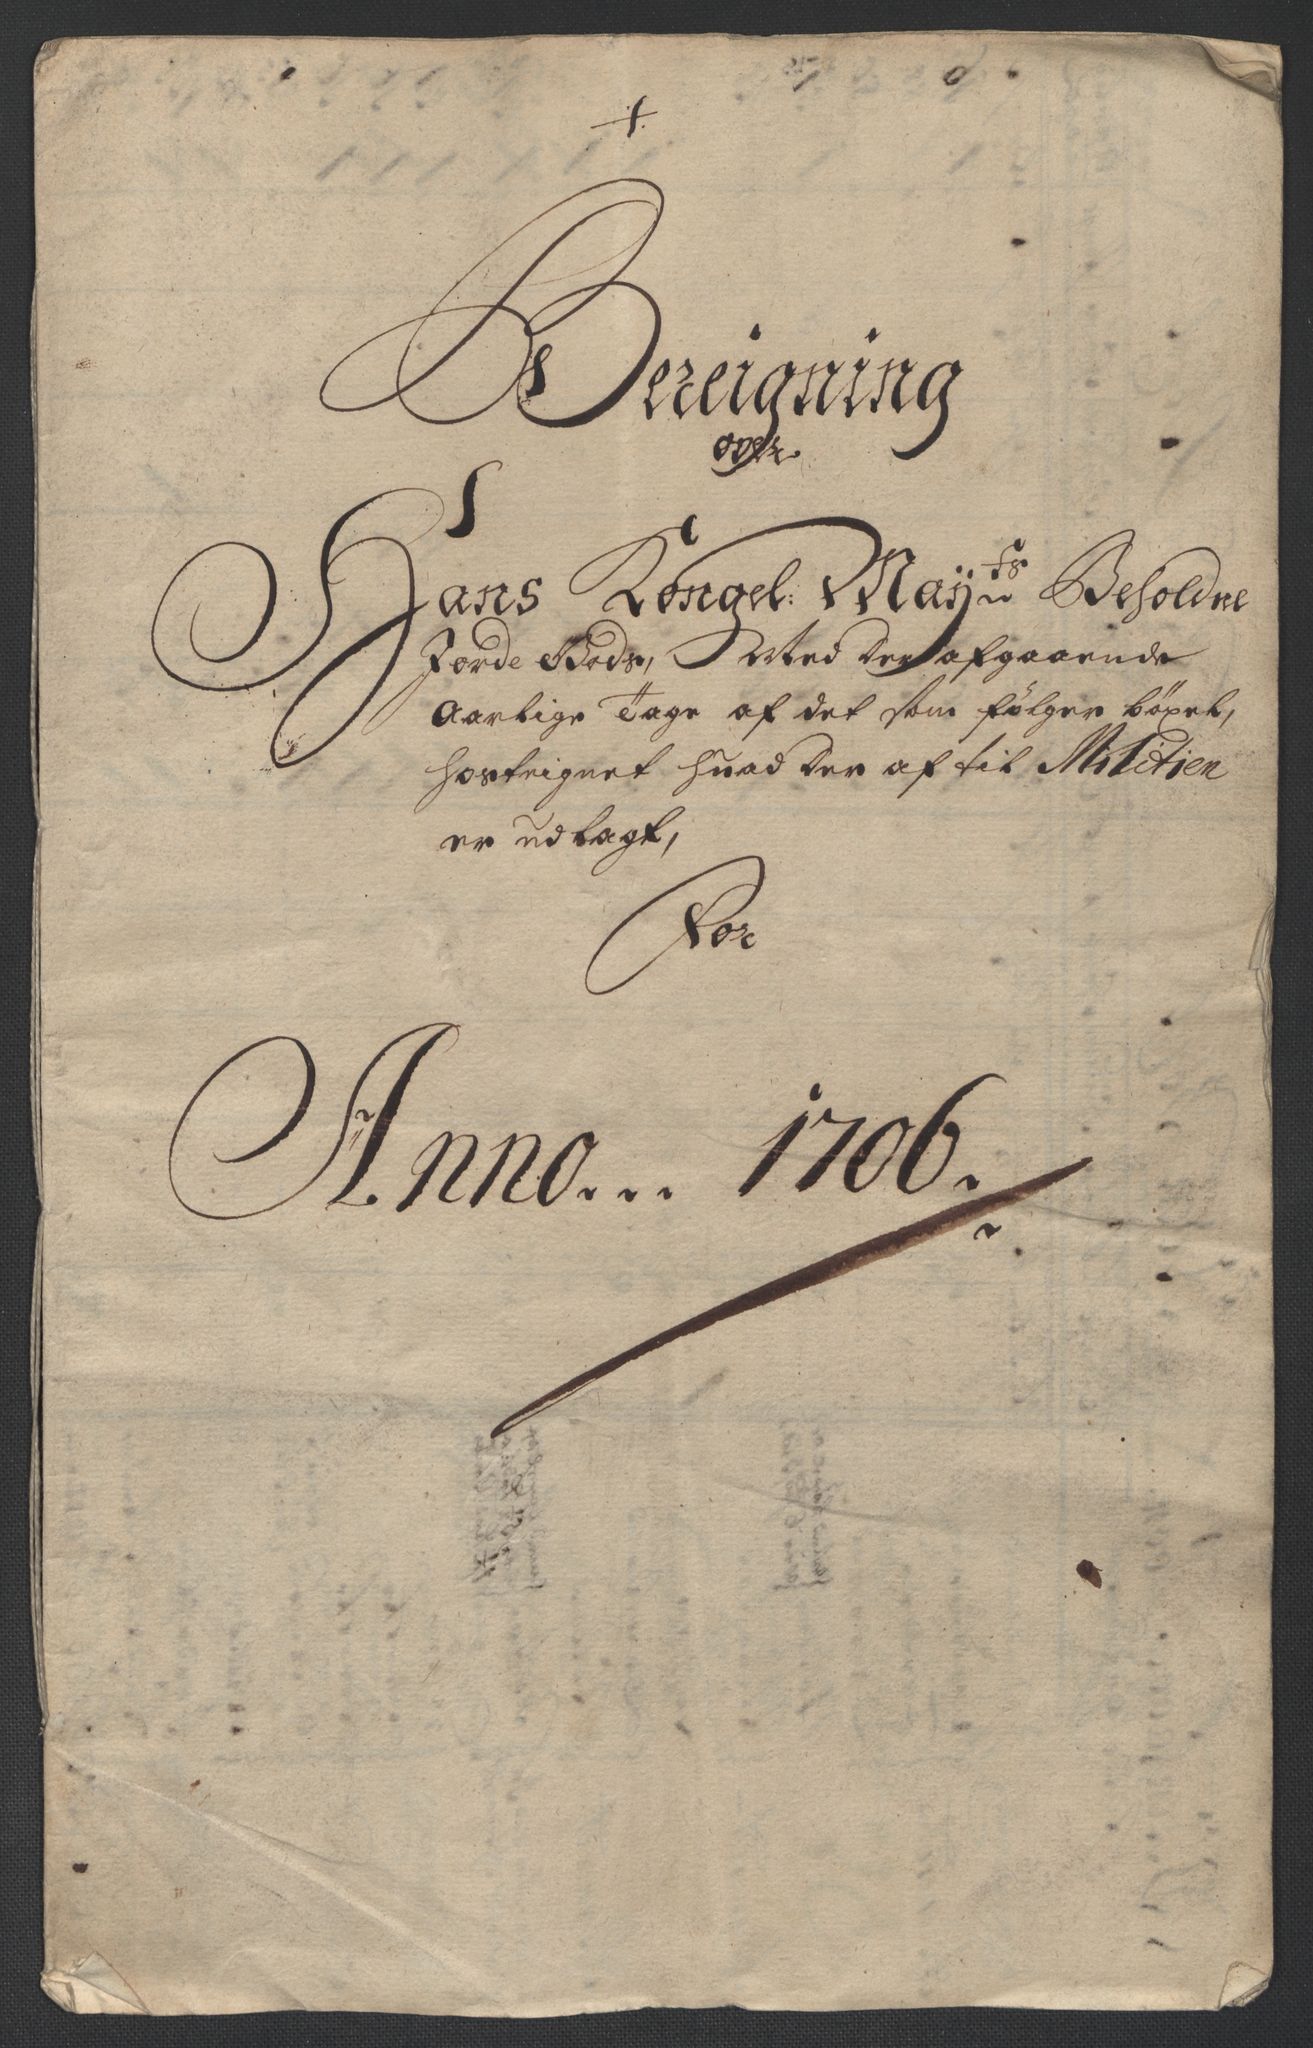 +
Bereigning
over
Hans Kongel: Mayts Beholdne
Jorde Gods, Med der afgaaende
Aarlige Tage af det som følger bøxel,
hosteignet huad der af til Militien
er udlagt,
For
Anno... 1706.